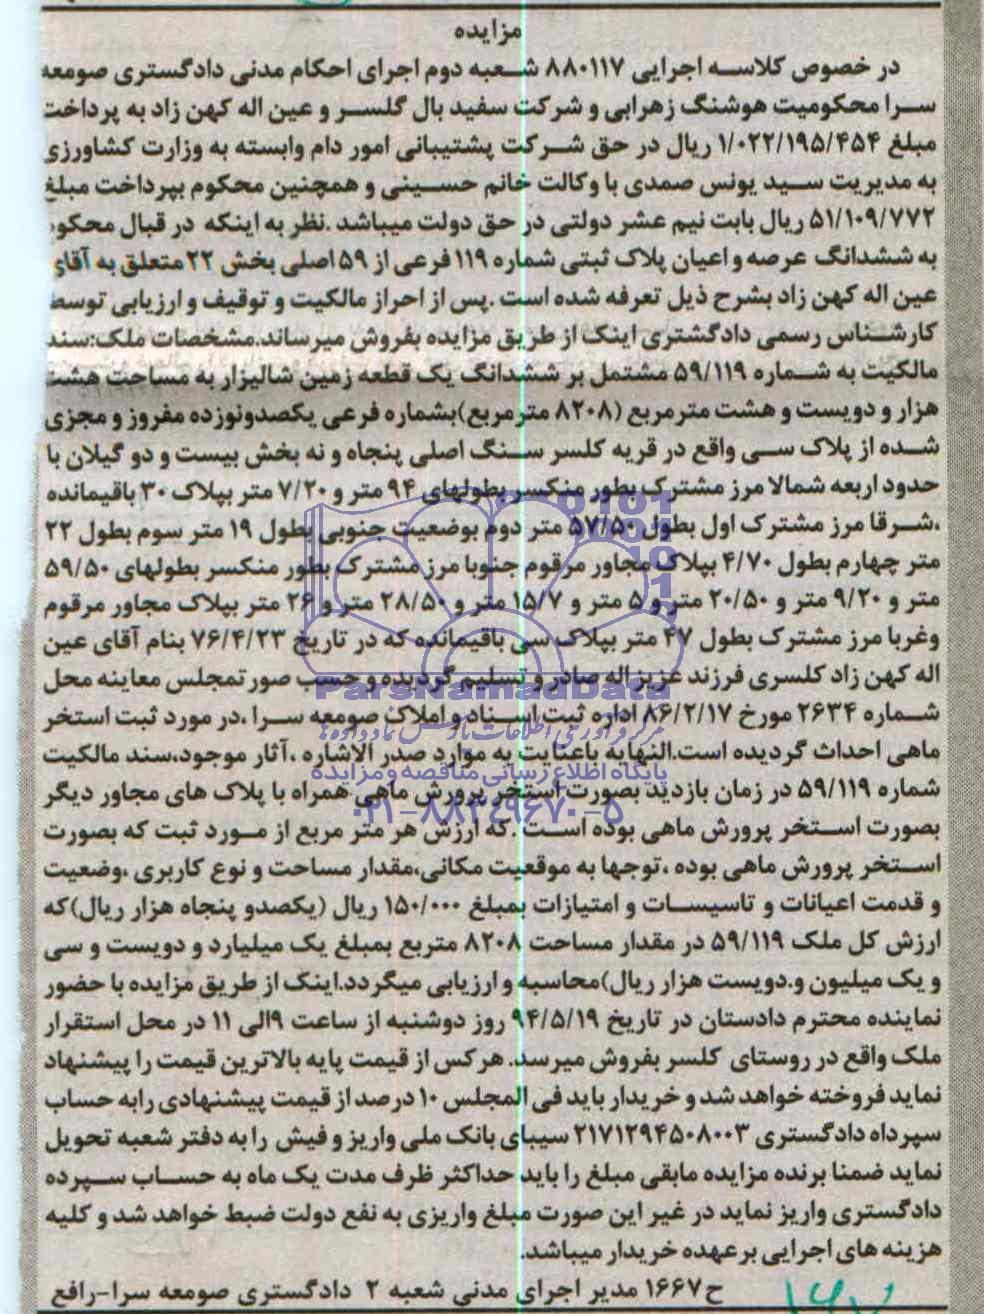 مزایده
در خصوص کلاسه اجرایی ۸۸۰۱۱۷ شعبه دوم اجرای احکام مدنی دادگستری صومعه
سرا محکومیت هوشنگ زهرابی و شرکت سفید بال گلسر و عین اله کهن زاد به پرداخت
مبلغ ۱/۰۲۲/۱۹۵/۴۵۴ ریال در حق شرکت پشتیبانی امور دام وابسته به وزارت کشاورزی
به مدیریت سید یونس صمدی با وکالت خانم حسینی و همچنین محکوم بپرداخت مبلغ
۵۱/۱۰۹/۷۷۲ ریال بابت نیم عشر دولتی در حق دولت میباشد .نظر به اینکه در قبال محکوم
به ششدانگ عرصه و اعیان پلاک ثبتی شماره ۱۱۹ فرعی از ۵۹ اصلی بخش ۲۲ متعلق به آقای
عین اله کهن زاد بشرح ذیل تعرفه شده است .پس از احراز مالکیت و توقیف و ارزیابی توسط
کارشناس رسمی دادگشتری اینک از طریق مزایده بفروش میرساند.مشخصات ملک:سند
مالکیت به شماره ۵۹/۱۱۹ مشتمل بر ششدانگ یک قطعه زمین شالیزار به مساحت هشت
هزار و دویست و هشت مترمربع (۸۲۰۸ مترمربع)بشماره فرعی یکصدونوزده مفروز و مجزی
شده از پلاک سی واقع در قریه کلسر سنگ اصلی پنجاه و نه بخش بیست و دو گیلان با
حدود اربعه شمالا مرز مشترک بطور منکسر بطولهای ۹۴ متر و ۷/۲۰ متر بپلاک ۳۰ باقیمانده
،شرقا مرز مشترک اول بطول ۵۷/۵۰ متر دوم بوضعیت جنوبی بطول ۱۹ متر سوم بطول ۲۲
متر چهارم بطول ۴/۷۰ بپلاک مجاور مرقوم جنوبا مرز مشترک بطور منکسر بطولهای ۵۹/۵۰
متر و ۹/۲۰ متر و ۲۰/۵۰ متر و ۵ متر و ۱۵/۷ متر و ۲۸/۵۰ متر و ۲۶ متر بپلاک مجاور مرقوم
وغربا مرز مشترک بطول ۴۷ متر بپلاک سی باقیمانده که در تاریخ ۷۶/۴/۲۳ بنام آقای عین
اله کهن زاد کلسری فرزند عزیزاله صادر و تسلیم گردیده و حسب صورتمجلس معاینه محل
شماره ۲۶۳۴ مورخ ۸۶/۲/۱۷ اداره ثبت اسناد و املاک صومعه سرا ،در مورد ثبت استخر
ماهی احداث گردیده است.النهایه باعنایت به موارد صدر الاشاره ،آثار موجود،سند مالکیت
شماره ۵۹/۱۱۹ در زمان بازدید بصورت استخر پرورش ماهی همراه با پلاک های مجاور دیگر
بصورت استخر پرورش ماهی بوده است .که ارزش هر متر مربع از مورد ثبت که بصورت
استخر پرورش ماهی بوده ،توجها به موقعیت مکانی،مقدار مساحت و نوع کاربری ،وضعیت
و قدمت اعیانات و تاسیسات و امتیازات بمبلغ ۱۵۰/۰۰۰ ریال (یکصدو پنجاه هزار ریال)که
ارزش کل ملک ۵۹/۱۱۹ در مقدار مساحت ۸۲۰۸ متربع بمبلغ یک میلیارد و دویست و سی
و یک میلیون و.دویست هزار ریال)محاسبه و ارزیابی میگردد.اینک از طریق مزایده با حضور
نماینده محترم دادستان در تاریخ ۹۴/۵/۱۹ روز دوشنبه از ساعت ۹الی ۱۱ در محل استقرار
ملک واقع در روستای کلسر بفروش میرسد. هرکس از قیمت پایه بالاترین قیمت را پیشنهاد
نماید فروخته خواهد شد و خریدار باید فی المجلس ۱۰ درصد از قیمت پیشنهادی رابه حساب
سپرداه دادگستری ۲۱۷۱۲۹۴۵۰۸۰۰۳ سیبای بانک ملی واریز و فیش را به دفتر شعبه تحویل
نماید ضمنا برنده مزایده مابقی مبلغ را باید حداکثر ظرف مدت یک ماه به حساب سپرده
دادگستری واریز نماید در غیر این صورت مبلغ واریزی به نفع دولت ضبط خواهد شد و کلیه
هزینه های اجرایی برعهده خریدار میباشد.
ح۱۶۶۷ مدیر اجرای مدنی شعبه ۲ دادگستری صومعه سرا-رافع
ParsNamadData
پایگاه اطلاع رسانی مناقصه و مزایده
۰۲۱-۸۸۳۴۹۶۷۰-۵